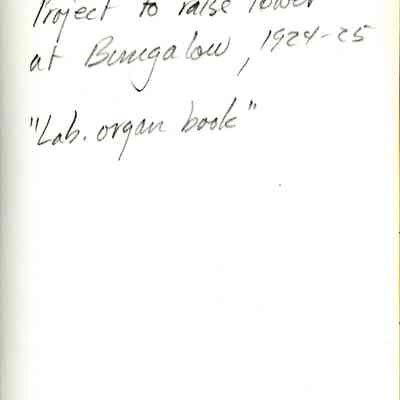 Project to raise tower
at Bungalow, 1924-25
"Lab. organ book"